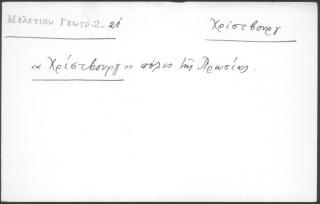 Μελετίου Γεωγρ. 2. 21
Χρίστβουργ
« Χρίστβουργ » πόλις τῆς Πρωσίας.